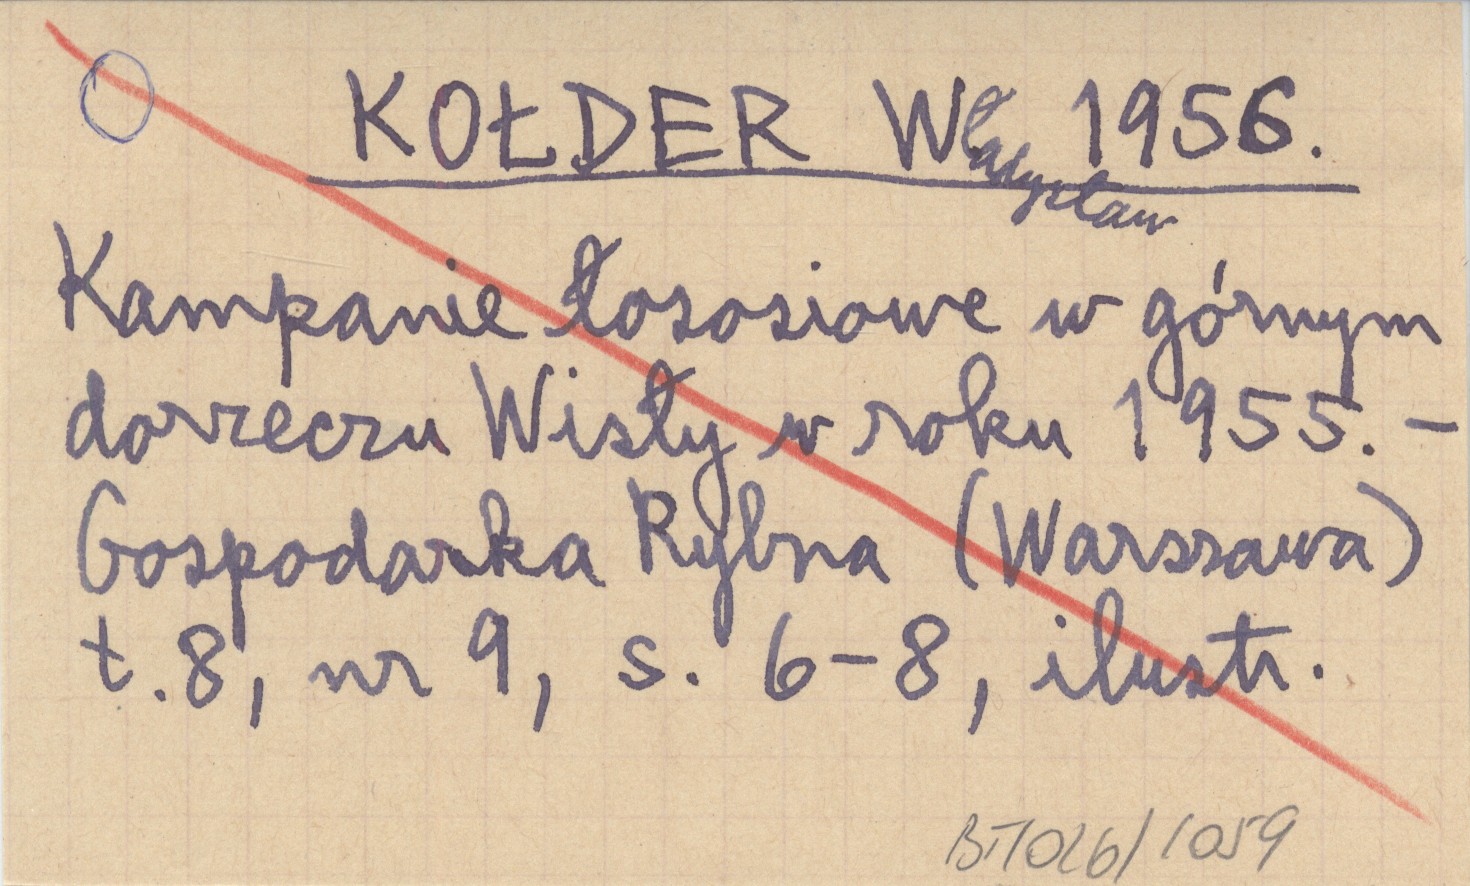 KOŁDER Władysław 1956.
Kampanie łososiowe w górnym
dorzeczu Wisły w roku 1955. –
Gospodarka Rybna (Warszawa)
t. 8, nr 9, s. 6–8, ilustr.
BT/026/1059